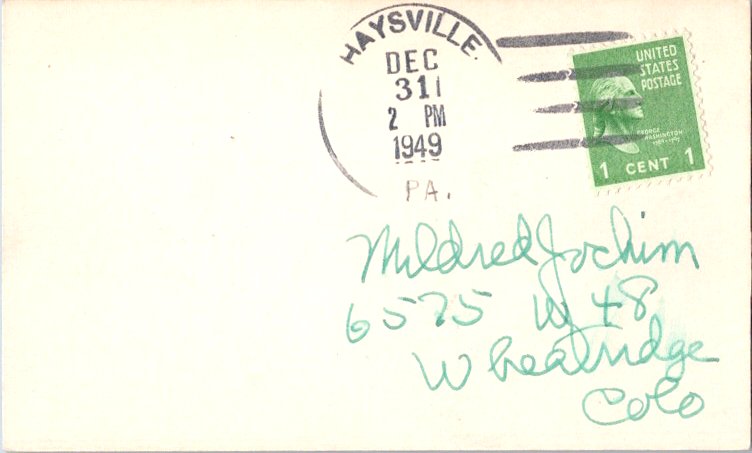 HAYSVILLE.
DEC
31
2 PM
1949
PA.
UNITED
STATES
POSTAGE
GEORGE
WASHINGTON
1789-1797
1 CENT 1
Mildred Jochim
6575 W 48
Wheatridge
Colo